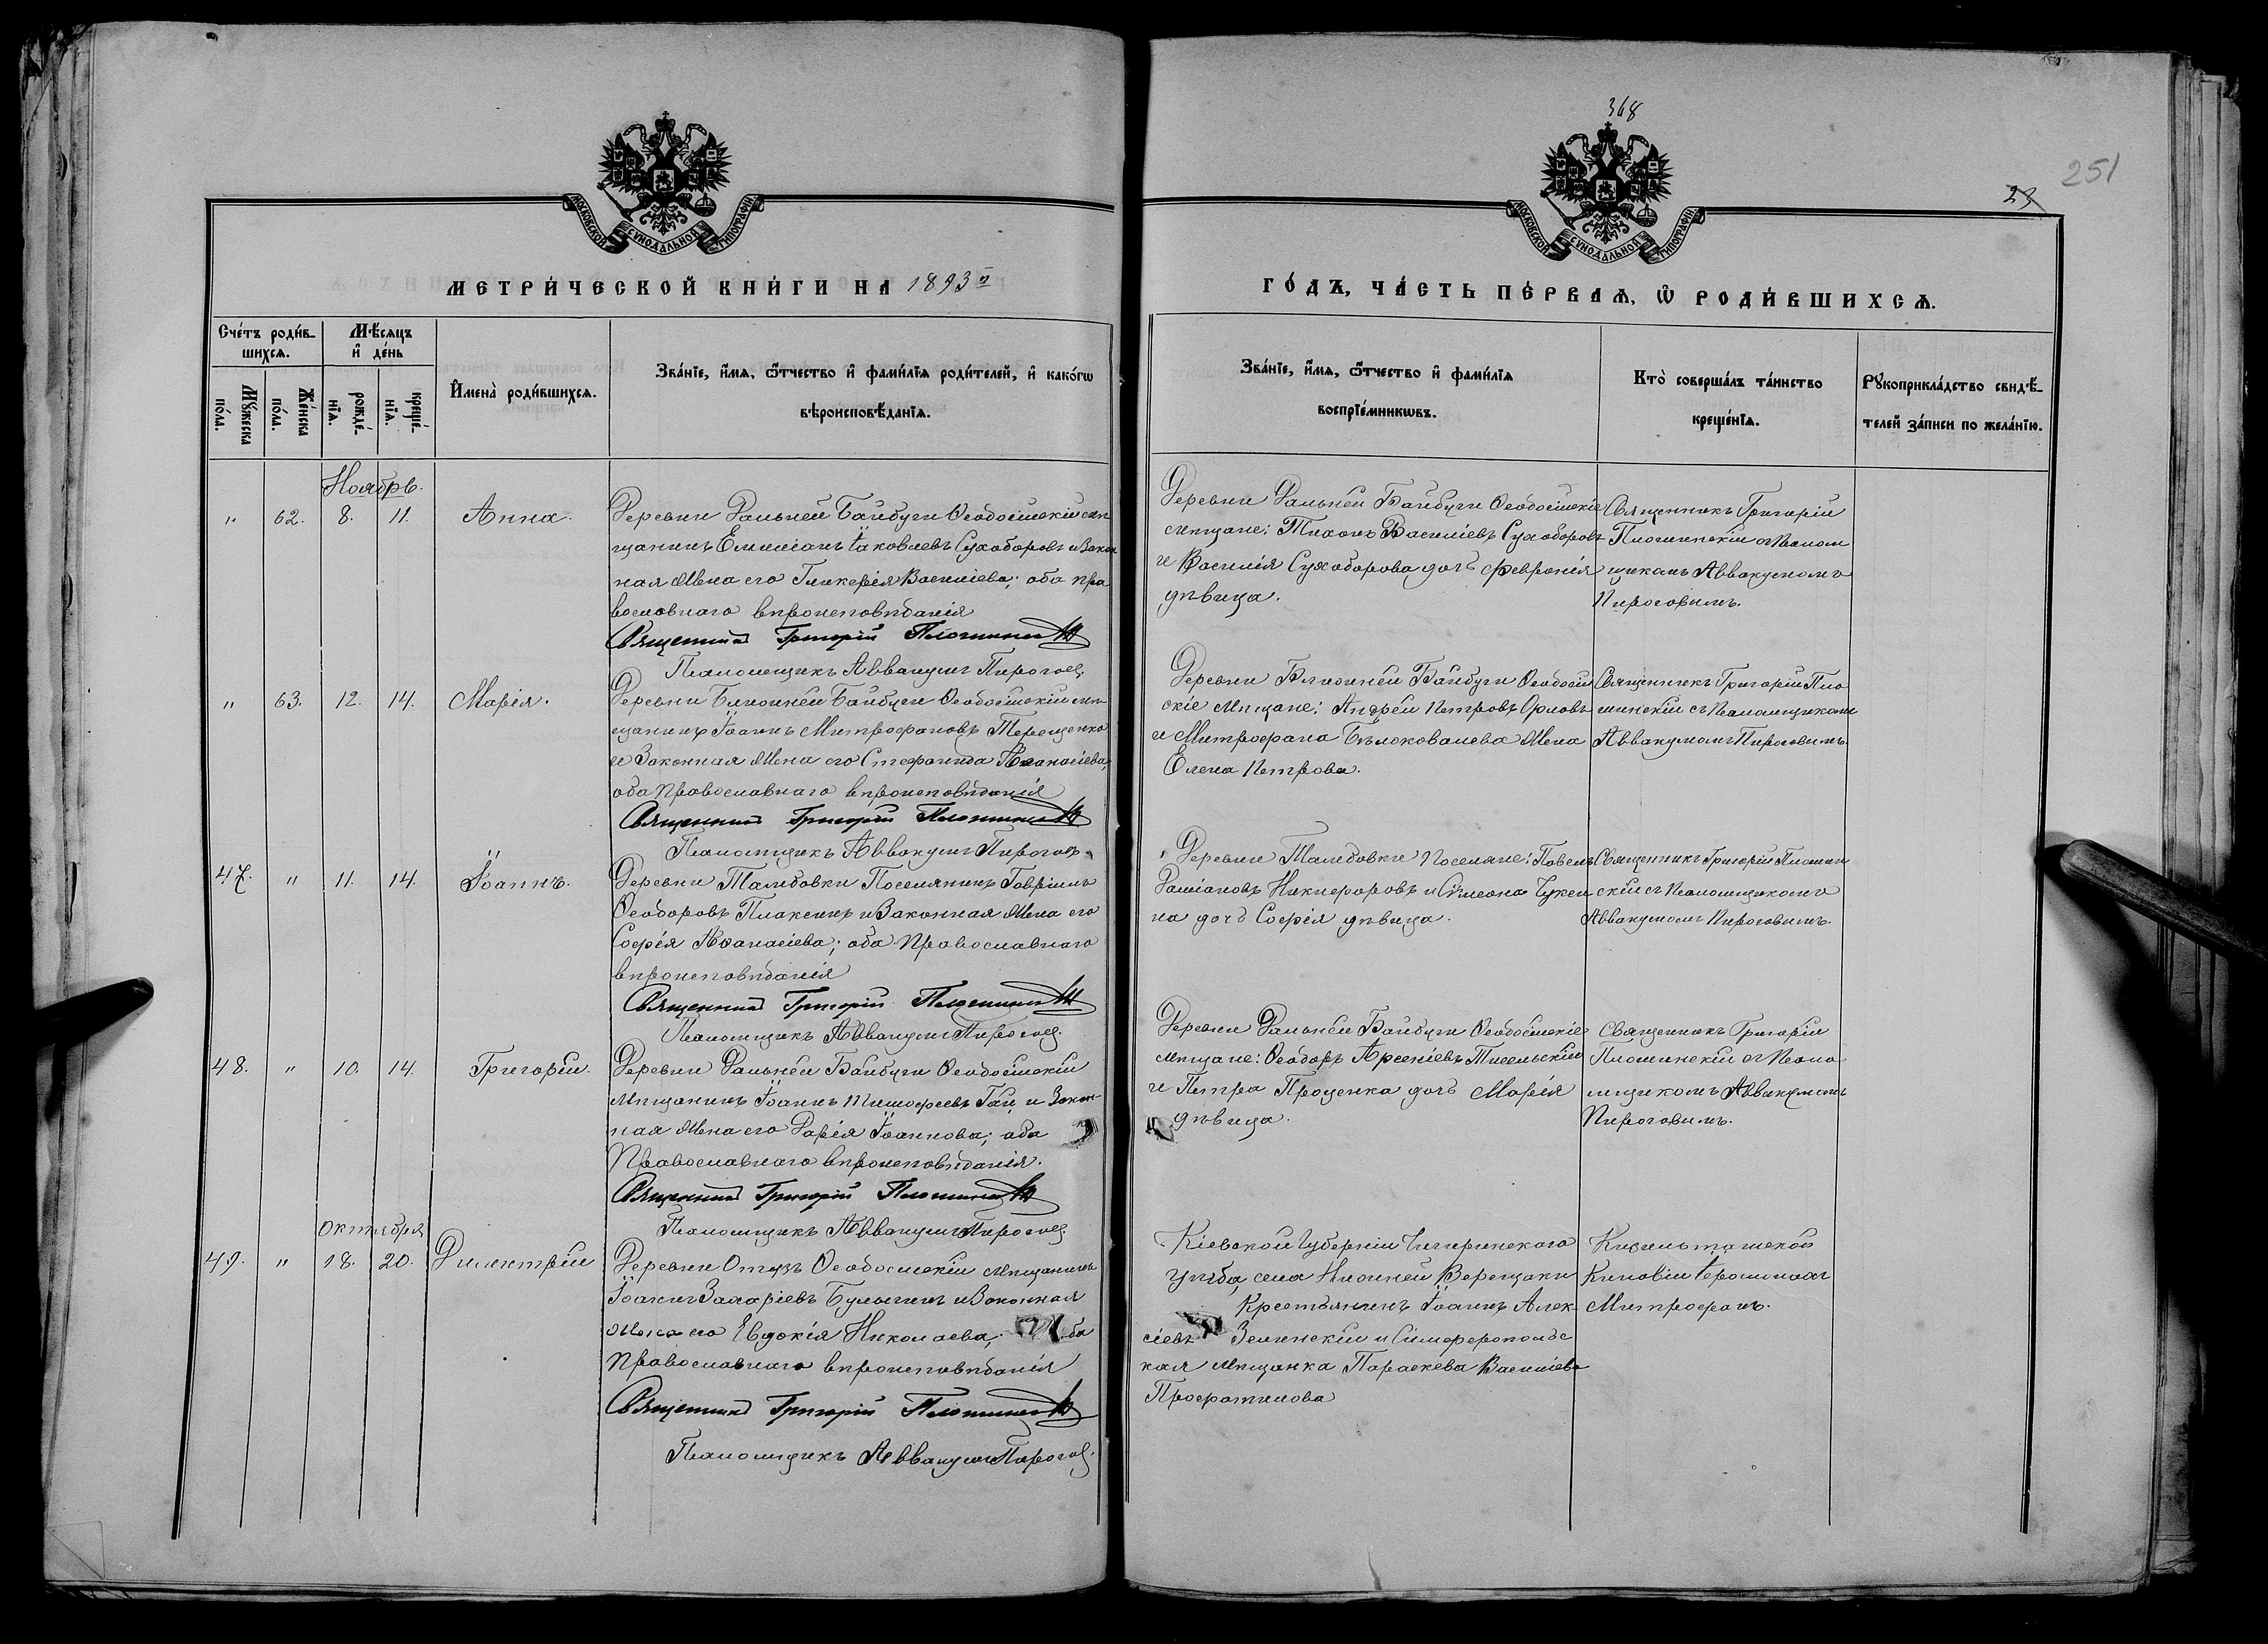 МОСКОВСКОЙ СУНОДАЛЬНОЙ ТИПОГРАФІИ
МЕТРИ́ЧЕСКОЙ КНИ́ГИ НА 1893 й
Сче́тъ роди́в-
шихсѧ.
Мꙋ́жеска
по́ла.
Же́нска
по́ла.
Мѣ́сѧцъ
и҆ де́нь
рожде́-
нїѧ.
креще́-
нїѧ.
И҆мена̀ роди́вшихсѧ.
Зва́нїе, и҆́мѧ, ѻ҆́тчество и҆ фами́лїѧ роди́телей, и҆ како́гѡ
вѣроисповѣ́данїѧ.
Ноябрь.
" 62. 8. 11. Анна.
Деревни Дальней Байбуги Ѳеодосійскій мѣ
щанинъ Емиліанъ Іаковлевъ Сухоборовъ и Закон
ная Жена его Гликерія Василіева; оба пра
вославнаго вѣроисповѣданія
Священникъ Григорій Плошинскій
Псаломщикъ Аввакумъ Пироговъ.
" 63. 12. 14. Марія.
Деревни Ближней Байбуги Ѳеодосійскій мѣ-
щанинъ Іоаннъ Митрофановъ Терещенко
и Законная Жена его Стефанида Аѳанасіева;
оба Православнаго вѣроисповѣданія
Священникъ Григорій Плошинскій
Псаломщикъ Аввакумъ Пироговъ.
47. " 11. 14. Іоаннъ.
Деревни Тамбовки Поселянинъ Гавріилъ
Ѳеодоровъ Плаксинъ и Законная Жена его
Софія Аѳанасіева; оба Православнаго
вѣроисповѣданія
Священникъ Григорій Плошинскій
Псаломщикъ Аввакумъ Пироговъ.
48. " 10. 14. Григорій.
Деревни Дальней Байбуги Ѳеодосійскій
Мѣщанинъ Іоаннъ Тимофеевъ Гац и Закон-
ная Жена его Дарія Іоаннова; оба
Православнаго вѣроисповѣданія.
Священникъ Григорій Плошинскій
Псаломщикъ Аввакумъ Пироговъ.
Октября
49. " 18. 20. Димитрій
Деревни Отузъ Ѳеодосійскій Мѣщанинъ
Іоаннъ Захаріевъ Булыгинъ и Законная
Жена его Евдокія Николаева; оба
Православнаго вѣроисповѣданія
Священникъ Григорій Плошинскій
Псаломщикъ Аввакумъ Пироговъ.
368
251
МОСКОВСКОЙ СУНОДАЛЬНОЙ ТИПОГРАФІИ
ГО́ДЪ, ЧА́СТЬ ПЕ́РВАѦ, Ѡ҆ РОДИ́ВШИХСѦ.
Зва́нїе, и҆́мѧ, ѻ҆́тчество и҆ фами́лїѧ
воспрїе́мникѡвъ.
Кто̀ соверша́лъ та́инство
креще́нїѧ.
Рꙋкоприкла́дство свидѣ́-
телей за́писи по жела́нїю.
Деревни Дальней Байбуги Ѳеодосійскіе
мѣщане: Тихонъ Василіевъ Сухоборовъ
и Василія Сухоборова дочь Февронія
дѣвица.
Священникъ Григорій
Плошинскій съ Псалом
щикомъ Аввакумомъ
Пироговымъ.
Деревни Ближней Байбуги Ѳеодосій
скіе Мѣщане: Андрей Петровъ Орловъ
и Митрофана Бѣлоковалева Жена
Елена Петрова.
Священникъ Григорій Пло
шинскій съ Псаломщикомъ
Аввакумомъ Пироговымъ.
Деревни Тамбовки Поселяне: Павелъ
Даміановъ Никифоровъ и Симеона Чужен
на дочь Софія дѣвица.
Священникъ Григорій Плошин
скій съ Псаломщикомъ
Аввакумомъ Пироговымъ.
Деревни Дальней Байбуги Ѳеодосійскіе
мѣщане: Ѳеодоръ Арсеніевъ Тисельскій
и Петра Проценка дочь Марія
дѣвица.
Священникъ Григорій
Плошинскій съ Псало
мщикомъ Аввакумомъ
Пироговымъ.
Кіевской Губерніи Чигиринскаго
уѣзда, села Нижней Верещаки
Крестьянинъ Іоаннъ Алек
сіевъ Зелинскій и Симферопольс
кая мѣщанка Параскева Василіева
Профатилова
Кизильташской
Киновіи Іеромонахъ
Митрофанъ.